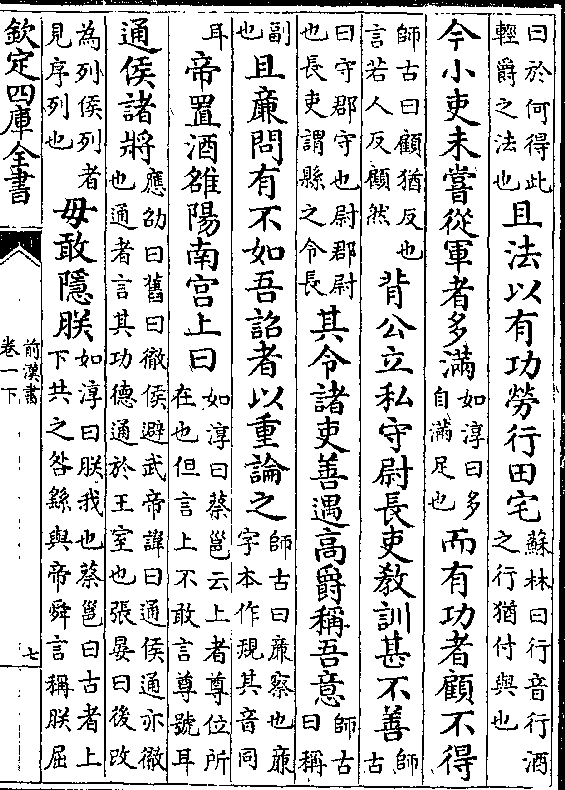 曰於何得此輕爵之法也且法以有功勞行田宅蘇林曰行音行酒之行猶付與也
今小吏未嘗從軍者多滿如淳曰多自滿足也而有功者顧不得
師古曰顧猶反也言若人反顧然背公立私守尉長吏教訓甚不善師古
曰守郡守也尉郡尉也長吏謂縣之令長其令諸吏善遇高爵稱吾意師古曰稱
副也且廉問有不如吾詔者以重論之師古曰廉察也廉字本作覝其音同
耳帝置酒雒陽南宫上曰如淳曰蔡邕云上者尊位所在也但言上不敢言尊號耳
通侯諸將應劭曰舊曰徹侯避武帝諱曰通侯通亦徹也通者言其功德通於王室也張晏曰後改
為列侯列者見序列也毋敢隱朕如淳曰朕我也蔡邕曰古者上下共之咎繇與帝舜言稱朕屈
欽定四庫全書
前漢書
卷一下
七